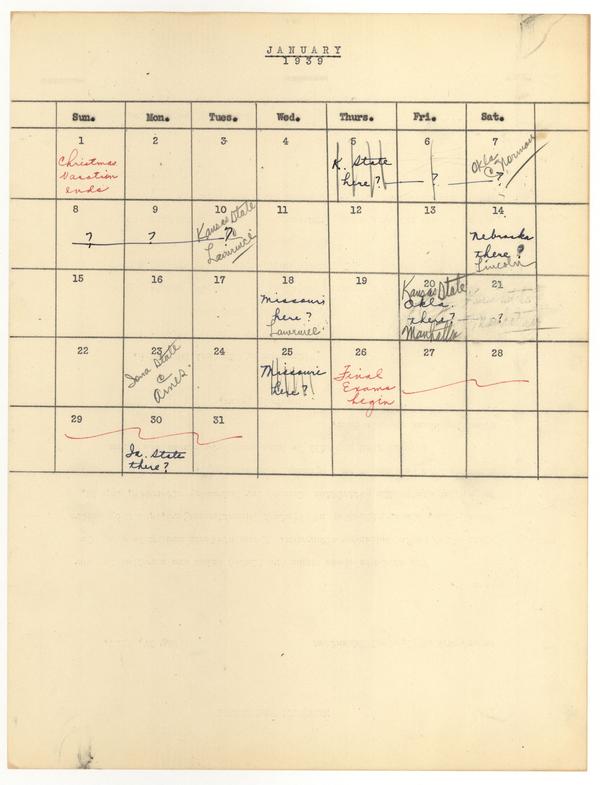 JANUARY
1939
Sun. Mon. Tues. Wed. Thurs. Fri. Sat.
1 2 3 4 5 6 7
Christmas
Vacation
ends
K. State
here? ? ?
Okla
@ Norman
8 9 10 11 12 13 14
? ? ?
Kansas State
Lawrence
Nebraska
there?
Lincoln
15 16 17 18 19 20 21
Missouri
here?
Kansas State
Okla.
there? ?
22 23 24 25 26 27 28
Iowa State
@
Ames.
Missouri
here?
Final
Exams
begin
29 30 31
Ia. State
there?